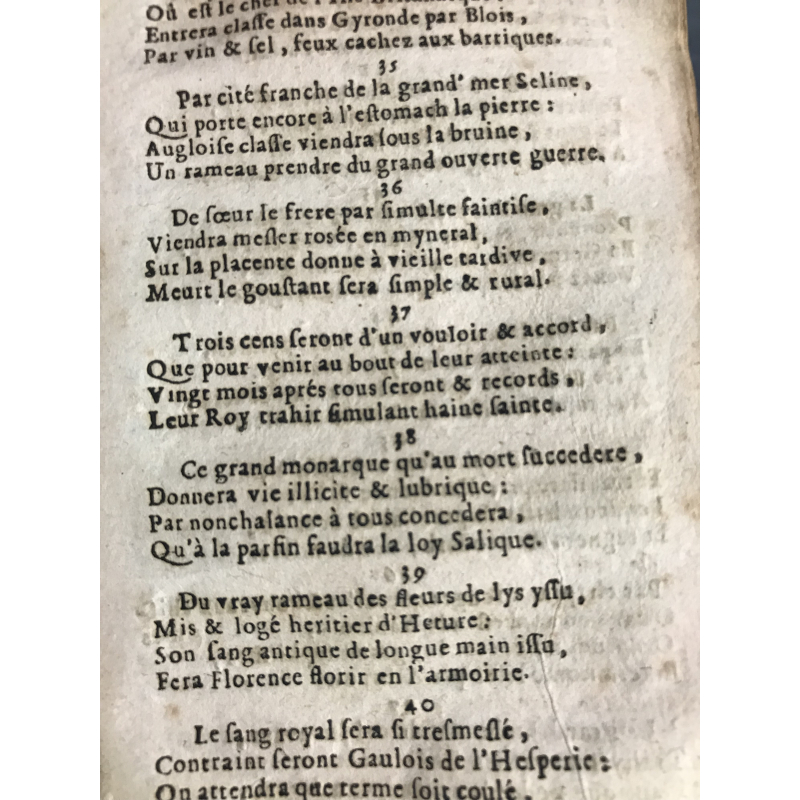 Où eſt le chef de
Entrera claſſe dans Gyronde par Blois,
Par vin & ſel, feux cachez aux barriques.
35
Par cité franche de la grand' mer Seline,
Qui porte encore à l'eſtomach la pierre :
Augloiſe claſſe viendra ſous la bruine,
Un rameau prendre du grand ouverte guerre.
36
De ſœur le frere par ſimulte faintiſe,
Viendra meſler rosée en myneral,
Sur la placente donne à vieille tardive,
Meurt le gouſtant ſera ſimple & rural.
37
Trois cens ſeront d'un vouloir & accord,
Que pour venir au bout de leur atteinte :
Vingt mois aprés tous ſeront & records,
Leur Roy trahir ſimulant haine ſainte.
38
Ce grand monarque qu'au mort ſuccedere,
Donnera vie illicite & lubrique :
Par nonchalance à tous concedera,
Qu'à la parfin faudra la loy Salique.
39
Du vray rameau des fleurs de lys yſſu,
Mis & logé heritier d'Heture :
Son ſang antique de longue main iſſu,
Fera Florence florir en l'armoirie.
40
Le ſang royal ſera ſi treſmeſlé,
Contraint ſeront Gaulois de l'Heſperie :
On attendra que terme ſoit coulé,